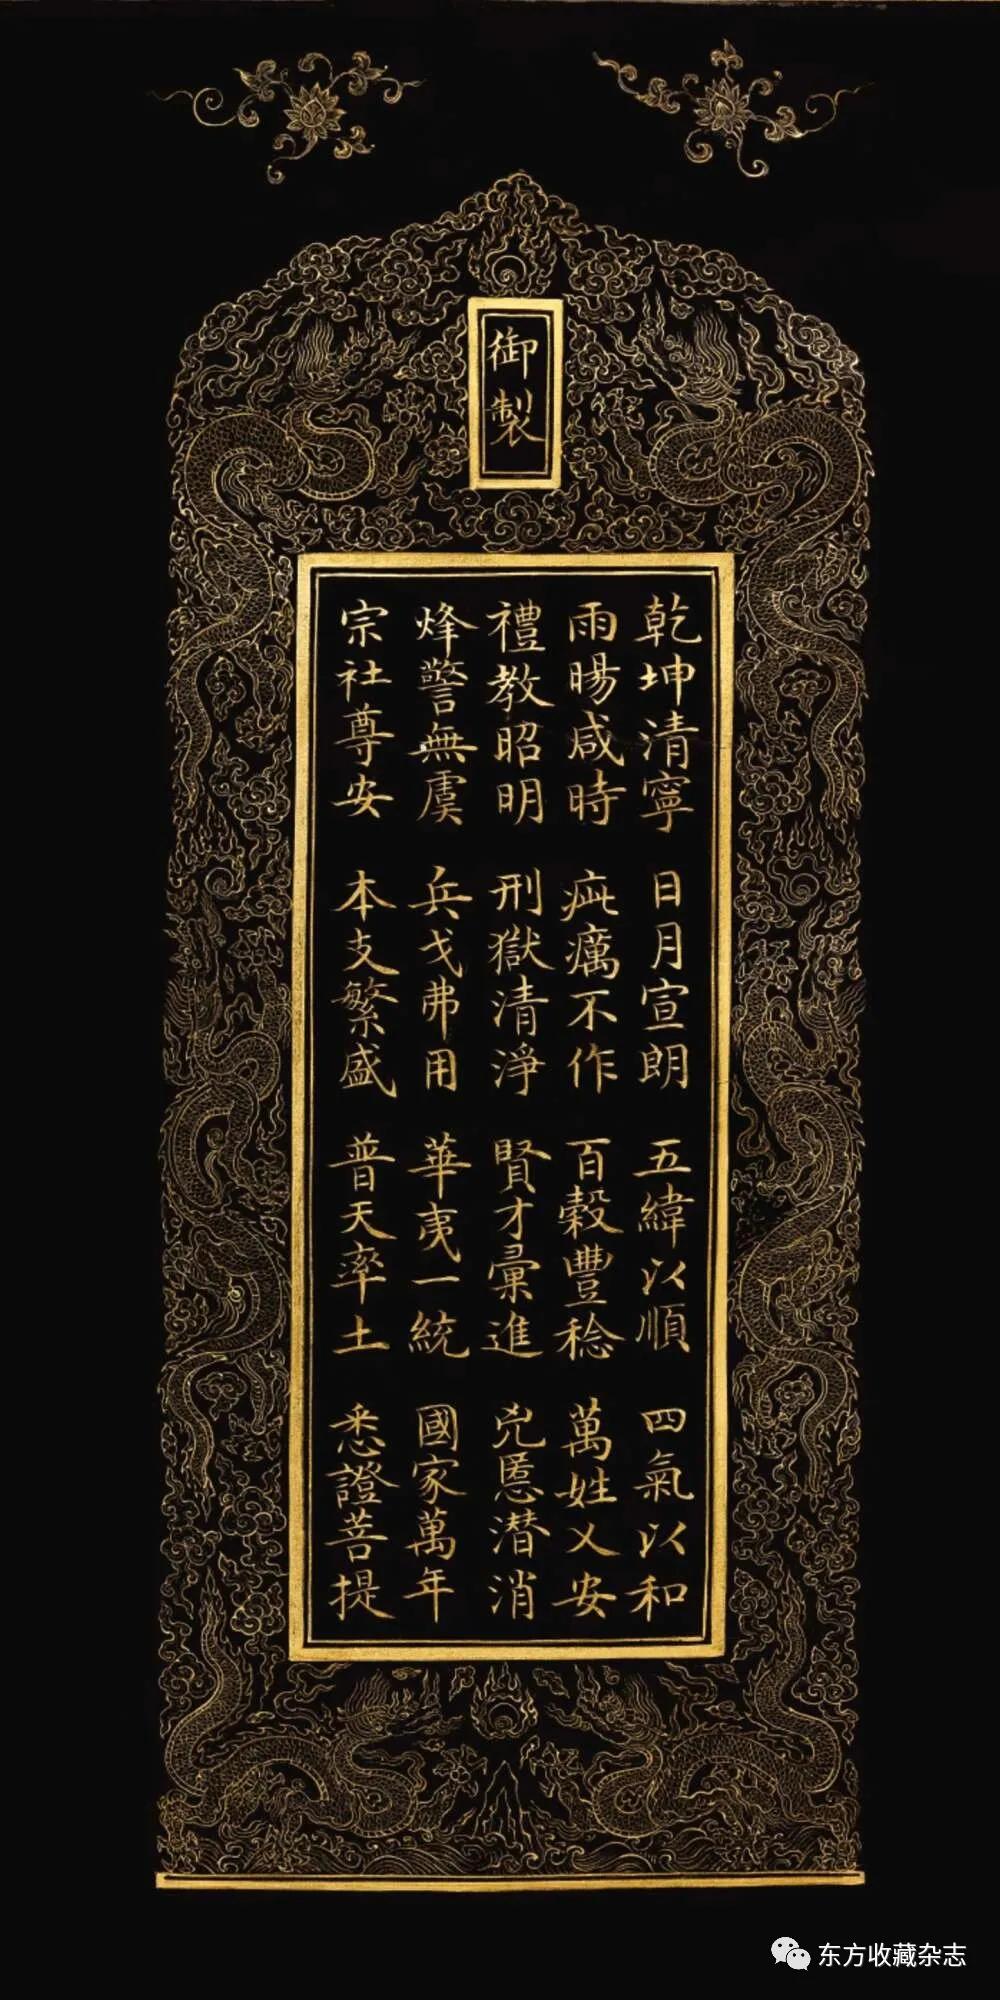 御製
乾坤清寧 日月宣朗 五緯以順 四氣以和
雨暘咸時 疵癘不作 百穀豐稔 萬姓乂安
禮教昭明 刑獄清淨 賢才彙進 兇慝潜消
烽警無虞 兵戈弗用 華夷一統 國家萬年
宗社尊安 本支繁盛 普天率土 悉證菩提
东方收藏杂志